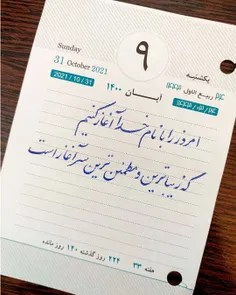 Sunday
31 October 2021
2021 / 10 / 31
۹
آبان ۱۴۰۰
یکشنبه
ربیع الاول
امروز را با نام خدا آغاز کنیم
که زیباترین و مطمئن ترین سرآغاز است
هفته ۳۳ ۲۲۴ روز گذشته ۱۴۰ روز مانده